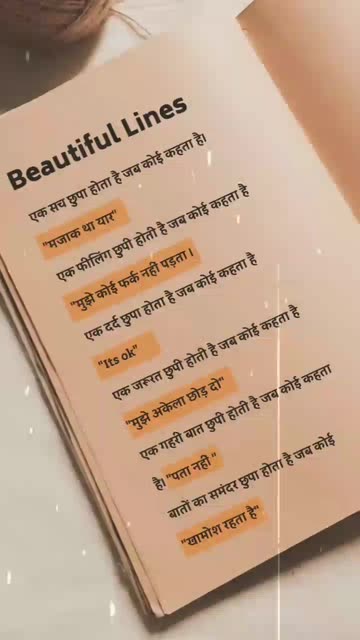 Beautiful Lines
एक सच छुपा होता है जब कोई कहता है।
"मजाक था यार"
एक फीलिंग छुपी होती है जब कोई कहता है
"मुझे कोई फर्क नही पड़ता।
एक दर्द छुपा होता है जब कोई कहता है
"Its ok"
एक जरूरत छुपी होती है जब कोई कहता है
"मुझे अकेला छोड़ दो"
एक गहरी बात छुपी होती है जब कोई कहता
है। "पता नही "
बातों का समंदर छुपा होता है जब कोई
"खामोश रहता है"